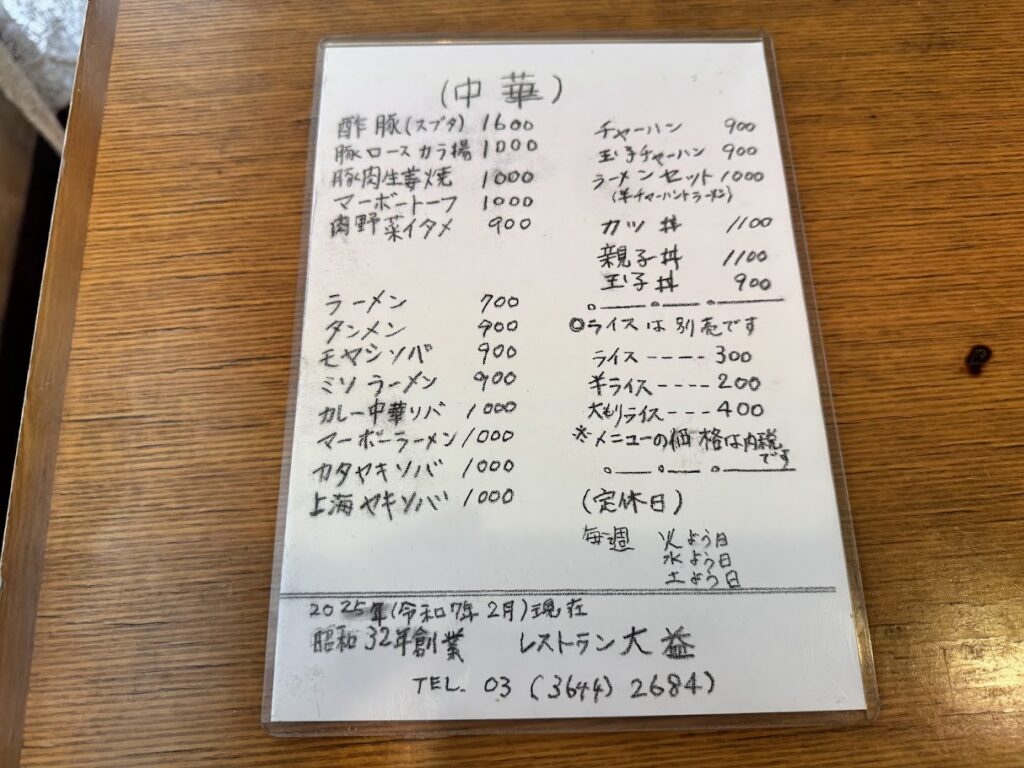 (中華)
酢豚(スブタ) 1600
豚ロースカラ揚 1000
豚肉生姜焼 1000
マーボートーフ 1000
肉野菜イタメ 900
ラーメン 700
タンメン 900
モヤシソバ 900
ミソラーメン 900
カレー中華ソバ 1000
マーボーラーメン 1000
カタヤキソバ 1000
上海ヤキソバ 1000
チャーハン 900
玉子チャーハン 900
ラーメンセット 1000
(半チャーハントラーメン)
カツ丼 1100
親子丼 1100
玉子丼 900
○ライスは別売です
ライス ---- 300
半ライス ---- 200
大もりライス --- 400
※メニューの価格は内税
です
(定休日)
毎週 火よう日
水よう日
土よう日
2025年(令和7年2月)現在
昭和32年創業 レストラン大益
TEL. 03 (3644) 2684)